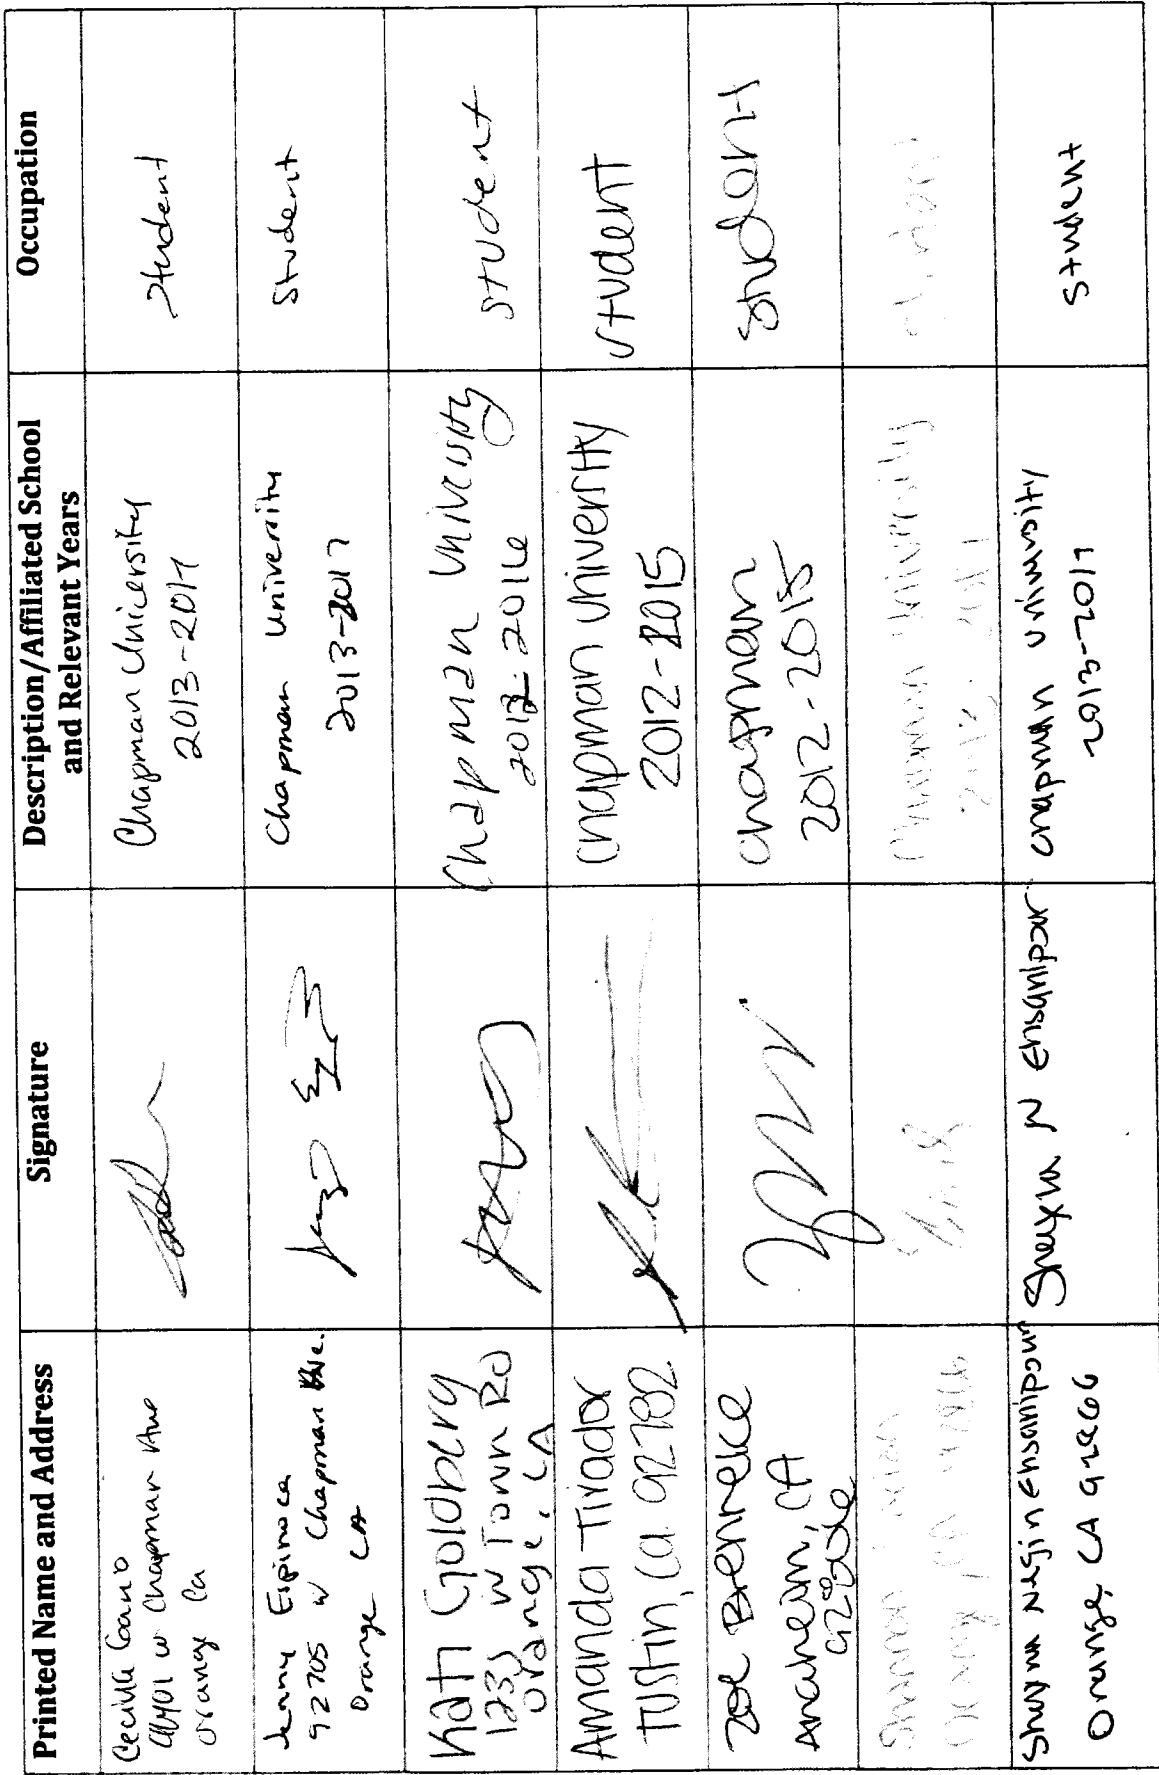 Printed Name and Address
Signature
Description/Affiliated School
and Relevant Years
Occupation
Cecilia
w Chapman Ave
Orange Ca
Chapman University
2013-2017
Student
Jenny Espinoza
92705 w Chapman Ave.
Orange CA
Chapman University
2013-2017
Student
Kati Goldberg
1235 W Town RD
Orange, CA
Chapman University
2016
student
Amanda Tirador
Tustin, Ca 92782
Chapman University
2012-2015
student
Zoe Brennecke
Anaheim, CA
Chapman
2012-2015
student
Chapman University
student
Negin Ehsanipour
Orange, CA 92866
N Ehsanipour
Chapman University
2013-2017
student